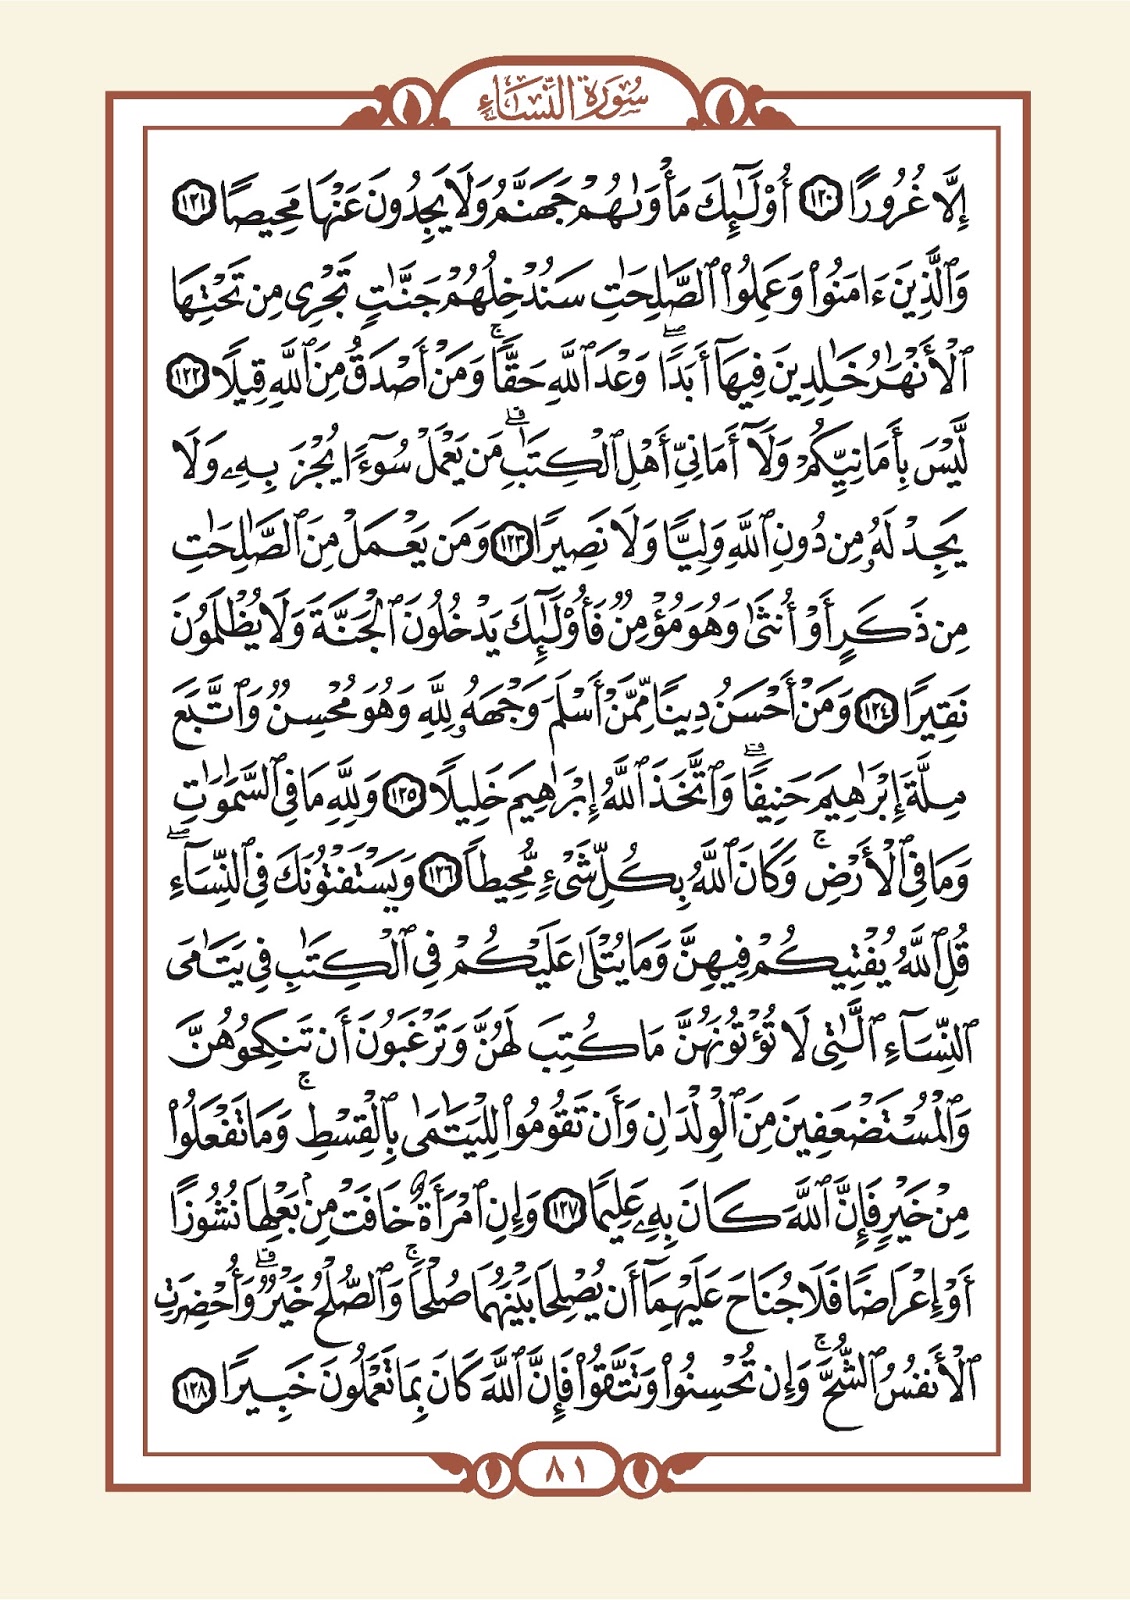 سُورَةُ النِّسَاءِ
إِلَّا غُرُورًا ١٢٠ أُوْلَٰٓئِكَ مَأْوَىٰهُمْ جَهَنَّمُ وَلَا يَجِدُونَ عَنْهَا مَحِيصًا ١٢١
وَٱلَّذِينَ ءَامَنُوا۟ وَعَمِلُوا۟ ٱلصَّٰلِحَٰتِ سَنُدْخِلُهُمْ جَنَّٰتٍ تَجْرِى مِن تَحْتِهَا
ٱلْأَنْهَٰرُ خَٰلِدِينَ فِيهَآ أَبَدًا ۖ وَعْدَ ٱللَّهِ حَقًّا ۚ وَمَنْ أَصْدَقُ مِنَ ٱللَّهِ قِيلًا ١٢٢
لَّيْسَ بِأَمَانِيِّكُمْ وَلَآ أَمَانِىِّ أَهْلِ ٱلْكِتَٰبِ ۗ مَن يَعْمَلْ سُوٓءًا يُجْزَ بِهِۦ وَلَا
يَجِدْ لَهُۥ مِن دُونِ ٱللَّهِ وَلِيًّا وَلَا نَصِيرًا ١٢٣ وَمَن يَعْمَلْ مِنَ ٱلصَّٰلِحَٰتِ
مِن ذَكَرٍ أَوْ أُنثَىٰ وَهُوَ مُؤْمِنٌ فَأُو۟لَٰٓئِكَ يَدْخُلُونَ ٱلْجَنَّةَ وَلَا يُظْلَمُونَ
نَقِيرًا ١٢٤ وَمَنْ أَحْسَنُ دِينًا مِّمَّنْ أَسْلَمَ وَجْهَهُۥ لِلَّهِ وَهُوَ مُحْسِنٌ وَٱتَّبَعَ
مِلَّةَ إِبْرَٰهِيمَ حَنِيفًا ۗ وَٱتَّخَذَ ٱللَّهُ إِبْرَٰهِيمَ خَلِيلًا ١٢٥ وَلِلَّهِ مَا فِى ٱلسَّمَٰوَٰتِ
وَمَا فِى ٱلْأَرْضِ ۚ وَكَانَ ٱللَّهُ بِكُلِّ شَىْءٍ مُّحِيطًا ١٢٦ وَيَسْتَفْتُونَكَ فِى ٱلنِّسَآءِ ۖ
قُلِ ٱللَّهُ يُفْتِيكُمْ فِيهِنَّ وَمَا يُتْلَىٰ عَلَيْكُمْ فِى ٱلْكِتَٰبِ فِى يَتَٰمَى
ٱلنِّسَآءِ ٱلَّٰتِى لَا تُؤْتُونَهُنَّ مَا كُتِبَ لَهُنَّ وَتَرْغَبُونَ أَن تَنكِحُوهُنَّ
وَٱلْمُسْتَضْعَفِينَ مِنَ ٱلْوِلْدَٰنِ وَأَن تَقُومُوا۟ لِلْيَتَٰمَىٰ بِٱلْقِسْطِ ۚ وَمَا تَفْعَلُوا۟
مِنْ خَيْرٍ فَإِنَّ ٱللَّهَ كَانَ بِهِۦ عَلِيمًا ١٢٧ وَإِنِ ٱمْرَأَةٌ خَافَتْ مِنۢ بَعْلِهَا نُشُوزًا
أَوْ إِعْرَاضًا فَلَا جُنَاحَ عَلَيْهِمَآ أَن يُصْلِحَا بَيْنَهُمَا صُلْحًا ۚ وَٱلصُّلْحُ خَيْرٌ ۗ وَأُحْضِرَتِ
ٱلْأَنفُسُ ٱلشُّحَّ ۚ وَإِن تُحْسِنُوا۟ وَتَتَّقُوا۟ فَإِنَّ ٱللَّهَ كَانَ بِمَا تَعْمَلُونَ خَبِيرًا ١٢٨
٨١